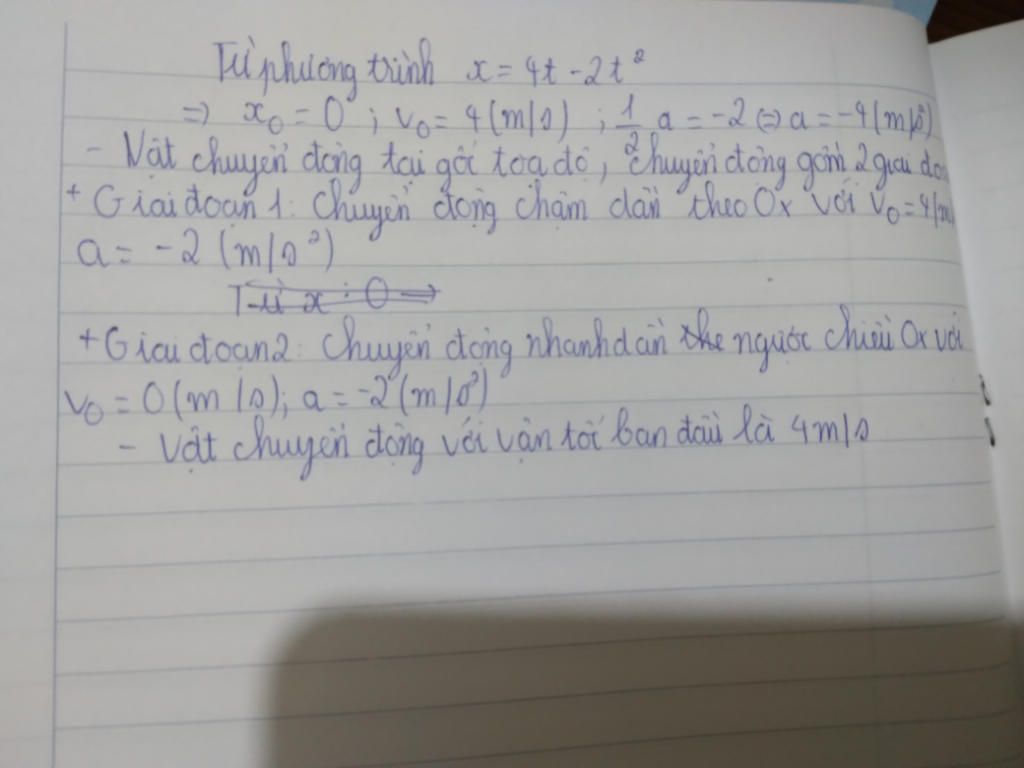 Từ phương trình x = 4t - 2t²
=> x₀ = 0 ; v₀ = 4 (m/s) ; 1/2 a = -2 <=> a = -4 (m/s²)
- Vật chuyển động tại gốc toạ độ, chuyển động gồm 2 giai
+ Giai đoạn 1: Chuyển động chậm dần theo Ox với v₀ = 4 (m/
a = -2 (m/s²)
Từ x : 0 →
+ Giai đoạn 2: Chuyển động nhanh dần the ngược chiều Ox với
v₀ = 0 (m/s); a = -2 (m/s²)
- Vật chuyển động với vận tốc ban đầu là 4m/s